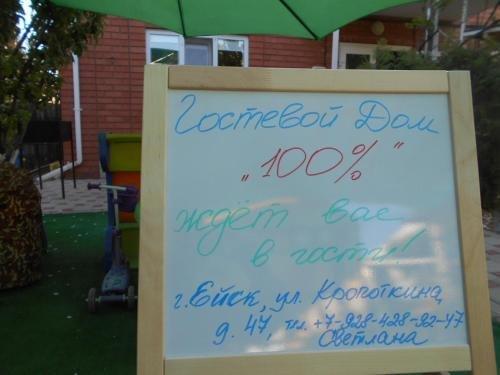 Гостевой Дом
„100%"
ждёт вас
в гости!
г. Ейск, ул. Кропоткина,
д. 47, тел. +7-928-428-92-47
Светлана